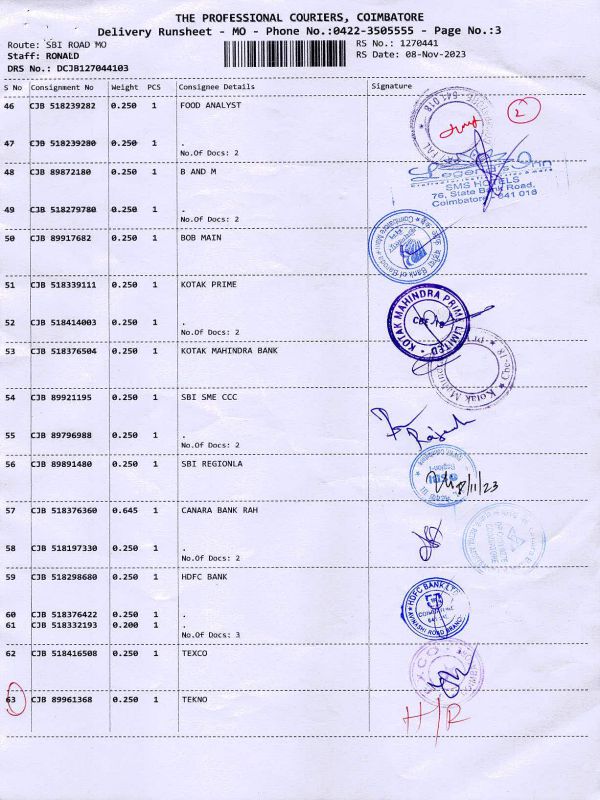 THE PROFESSIONAL COURIERS, COIMBATORE
Delivery Runsheet - MO - Phone No.:0422-3505555 - Page No.:3
Route: SBI ROAD MO
RS No.: 1270441
Staff: RONALD
RS Date: 08-Nov-2023
DRS No.: DCJB127044103
S No Consignment No Weight PCS Consignee Details Signature
46 CJB 518239282 0.250 1 FOOD ANALYST
2
47 CJB 518239280 0.250 1 .
No.Of Docs: 2
48 CJB 89872180 0.250 1 B AND M
SMS HOTELS
76, State Bank Road,
Coimbatore - 641 018
49 CJB 518279780 0.250 1 .
No.Of Docs: 2
50 CJB 89917682 0.250 1 BOB MAIN
51 CJB 518339111 0.250 1 KOTAK PRIME
KOTAK MAHINDRA PRIME LIMITED
CBE-18
52 CJB 518414003 0.250 1 .
No.Of Docs: 2
53 CJB 518376504 0.250 1 KOTAK MAHINDRA BANK
54 CJB 89921195 0.250 1 SBI SME CCC
55 CJB 89796988 0.250 1 .
No.Of Docs: 2
56 CJB 89891480 0.250 1 SBI REGIONLA
8/11/23
57 CJB 518376360 0.645 1 CANARA BANK RAH
58 CJB 518197330 0.250 1 .
No.Of Docs: 2
59 CJB 518298680 0.250 1 HDFC BANK
HDFC BANK LTD
AVINASHI ROAD BRANCH
60 CJB 518376422 0.250 1 .
61 CJB 518332193 0.200 1 .
No.Of Docs: 3
62 CJB 518416508 0.250 1 TEXCO
63 CJB 89961368 0.250 1 TEKNO
H/R